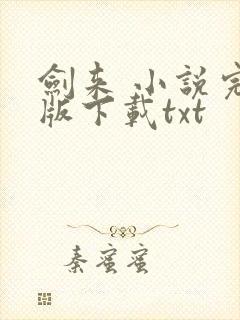 劍来 小説完
版下載txt
秦蜜蜜